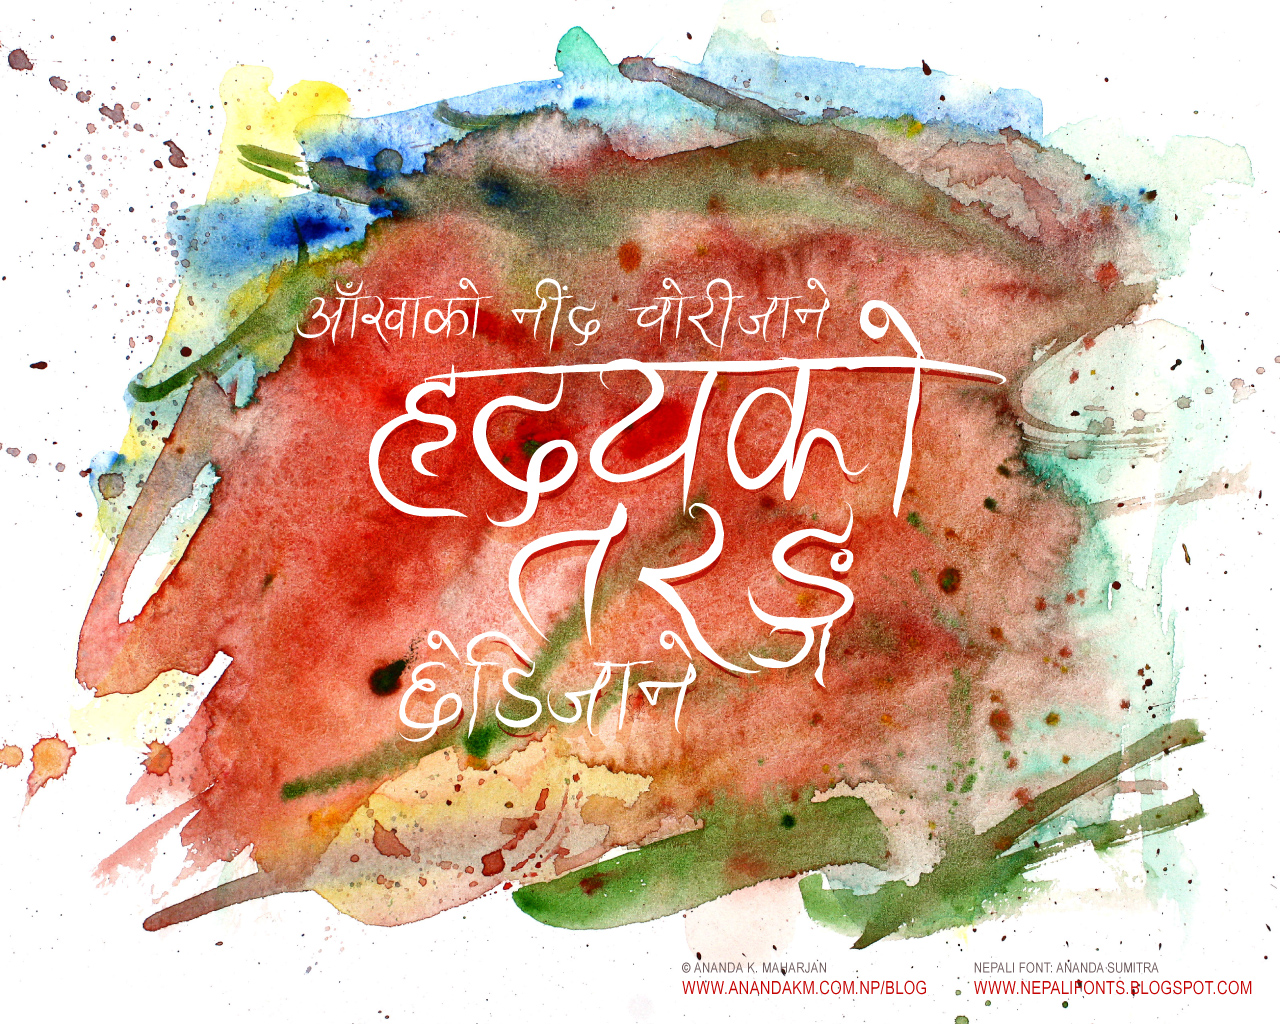 आँखाको नींद चोरीजाने
हृदयको
तरङ्ग
छोडिजाने
© ANANDA K. MAHARJAN
WWW.ANANDAKM.COM.NP/BLOG
NEPALI FONT: ANANDA SUMITRA
WWW.NEPALIFONTS.BLOGSPOT.COM